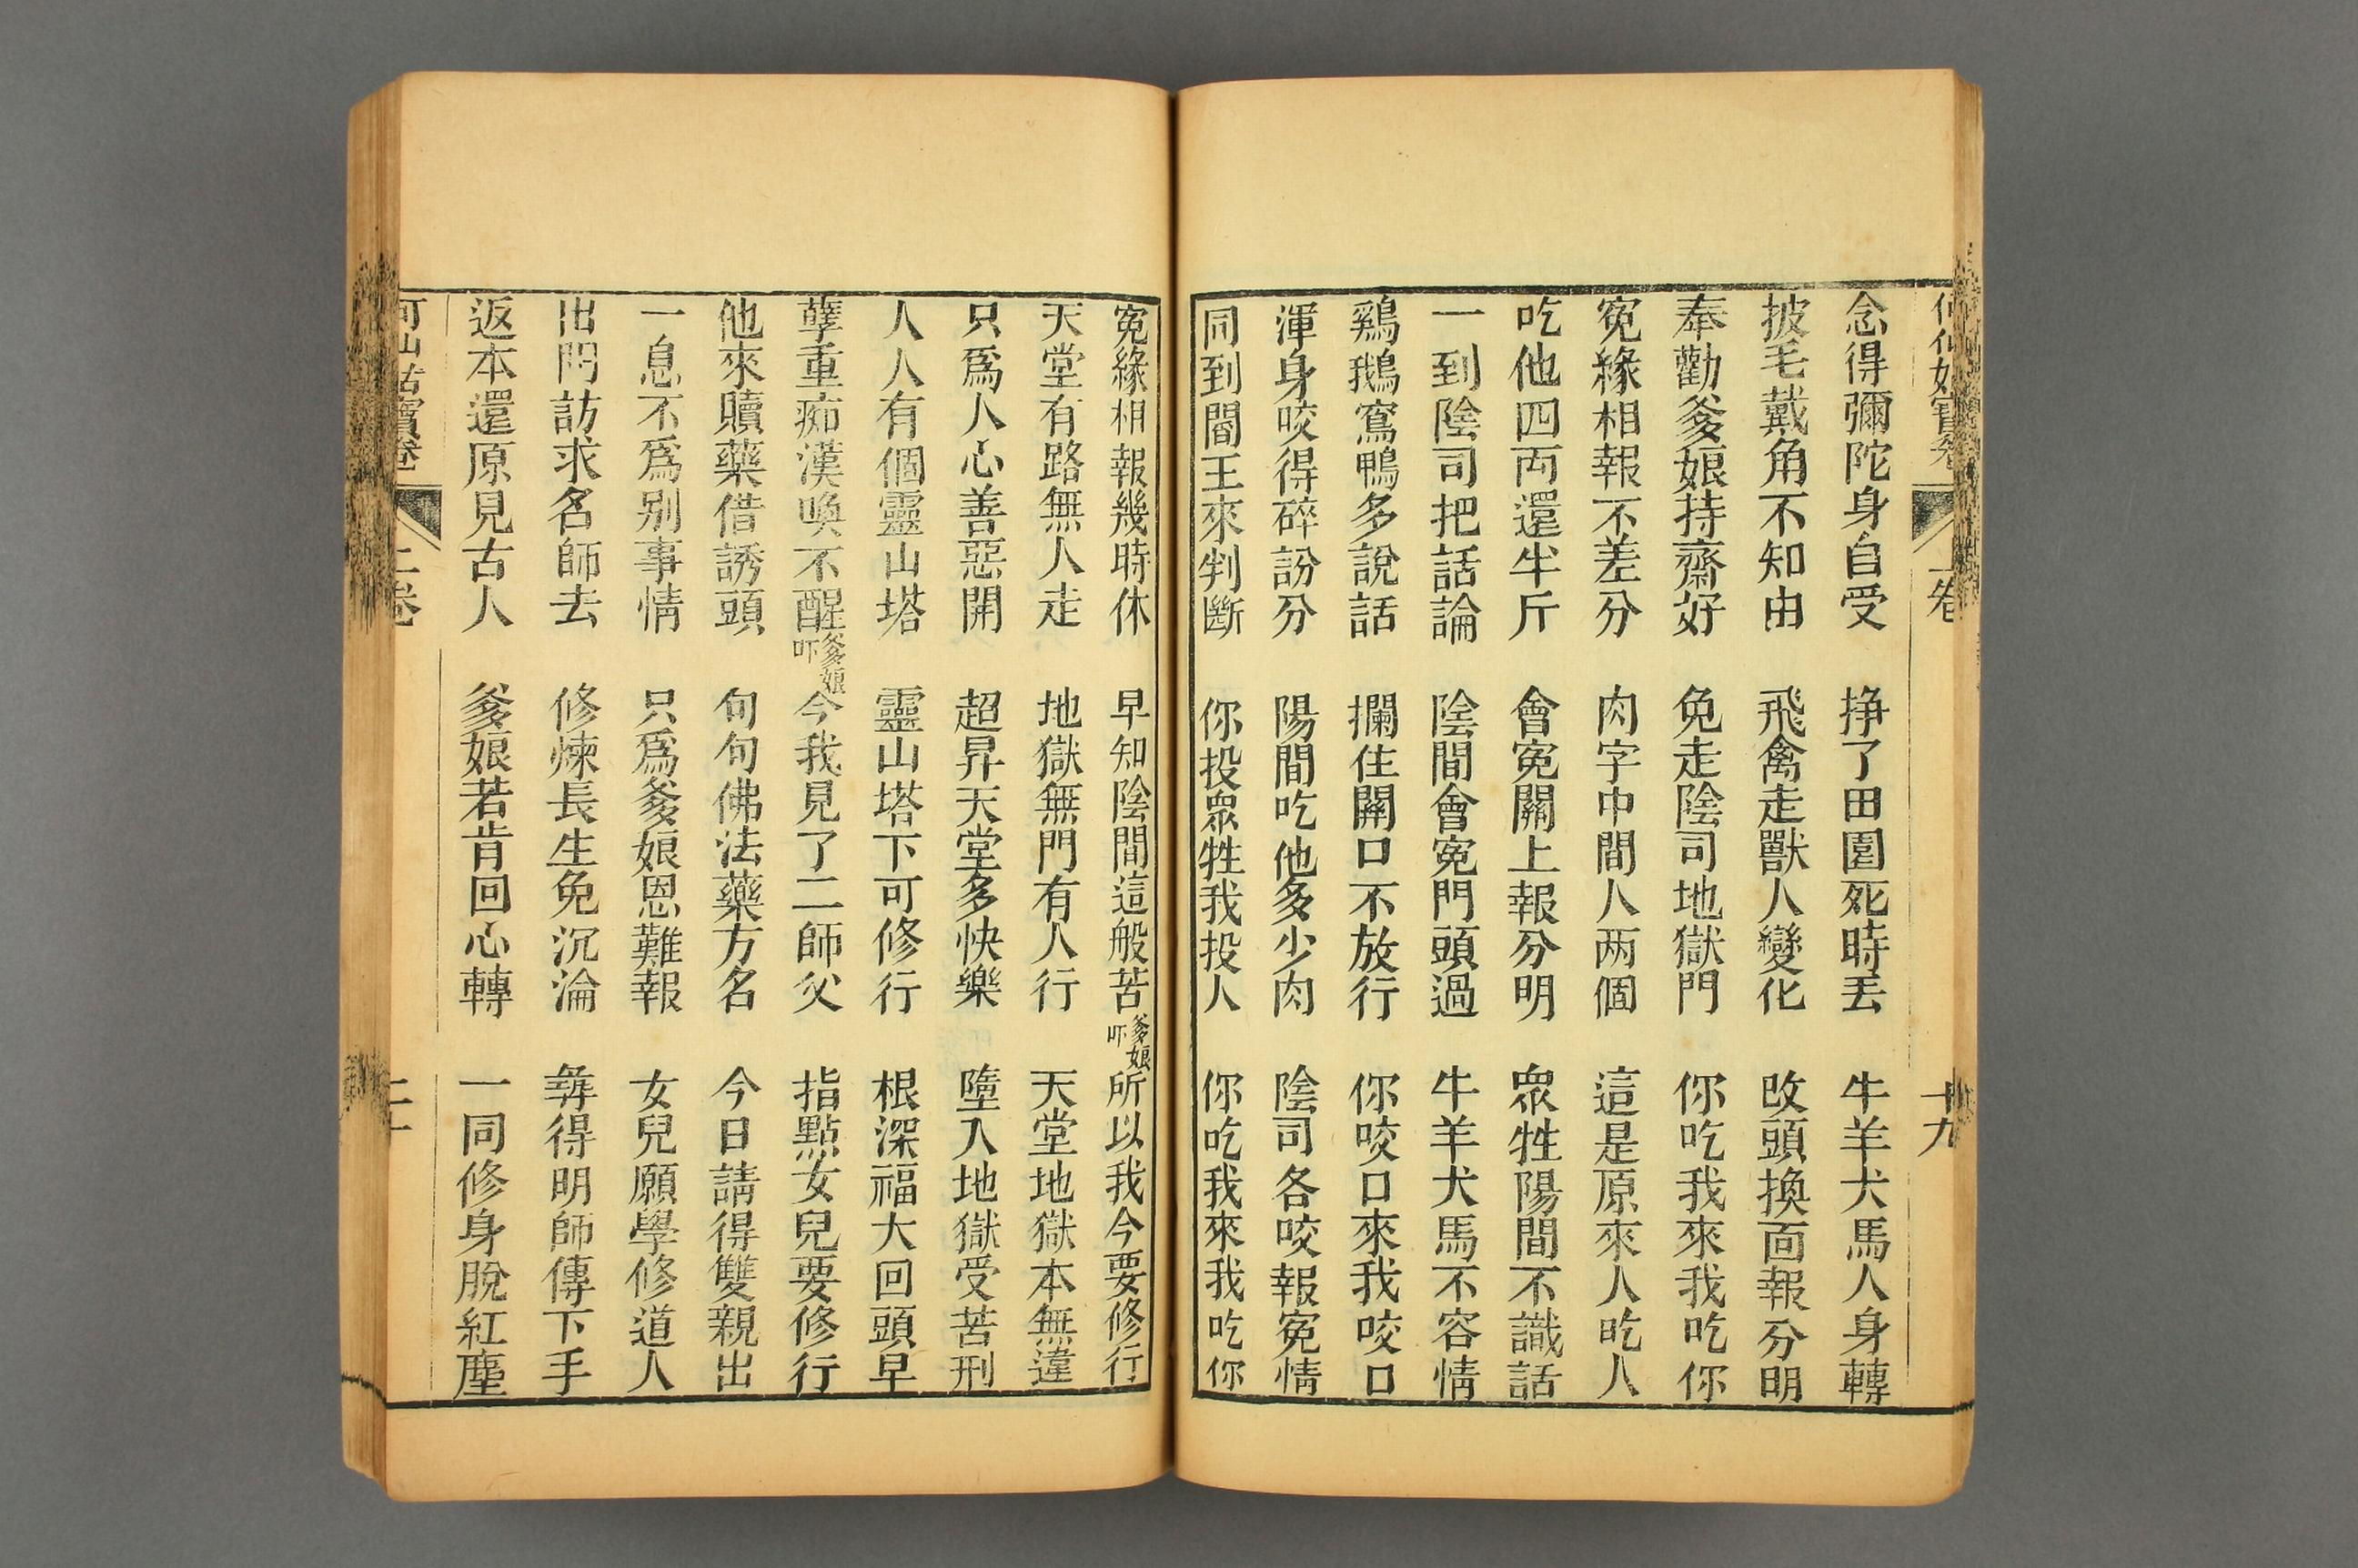 何仙姑寶卷 上卷 十九
念得彌陀身自受 掙了田園死時丟 牛羊犬馬人身轉
披毛戴角不知由 飛禽走獸人變化 改頭換面報分明
奉勸爹娘持齋好 免走陰司地獄門 你吃我來我吃你
寃緣相報不差分 肉字中間人两個 這是原來人吃人
吃他四両還半斤 會寃關上報分明 眾牲陽間不識話
一到陰司把話論 陰間會寃門頭過 牛羊犬馬不容情
鷄鵝鴛鴨多說話 攔住關口不放行 你咬口來我咬口
渾身咬得碎訜分 陽間吃他多少肉 陰司各咬報寃情
同到閻王來判斷 你投眾牲我投人 你吃我來我吃你
寃緣相報幾時休 早知陰間這般苦爹娘吓所以我今要修行
天堂有路無人走 地獄無門有人行 天堂地獄本無違
只爲人心善惡開 超昇天堂多快樂 墮入地獄受苦刑
人人有個靈山塔 靈山塔下可修行 根深福大回頭早
孽重痴漢喚不醒爹娘吓今我見了二師父 指點女兒要修行
他來贖藥借誘頭 句句佛法藥方名 今日請得雙親出
一息不爲别事情 只爲爹娘恩難報 女兒願學修道人
出門訪求名師去 修煉長生免沉淪 辥得明師傳下手
返本還原見古人 爹娘若肯回心轉 一同修身脫紅塵
何仙姑寶卷 上卷 二十